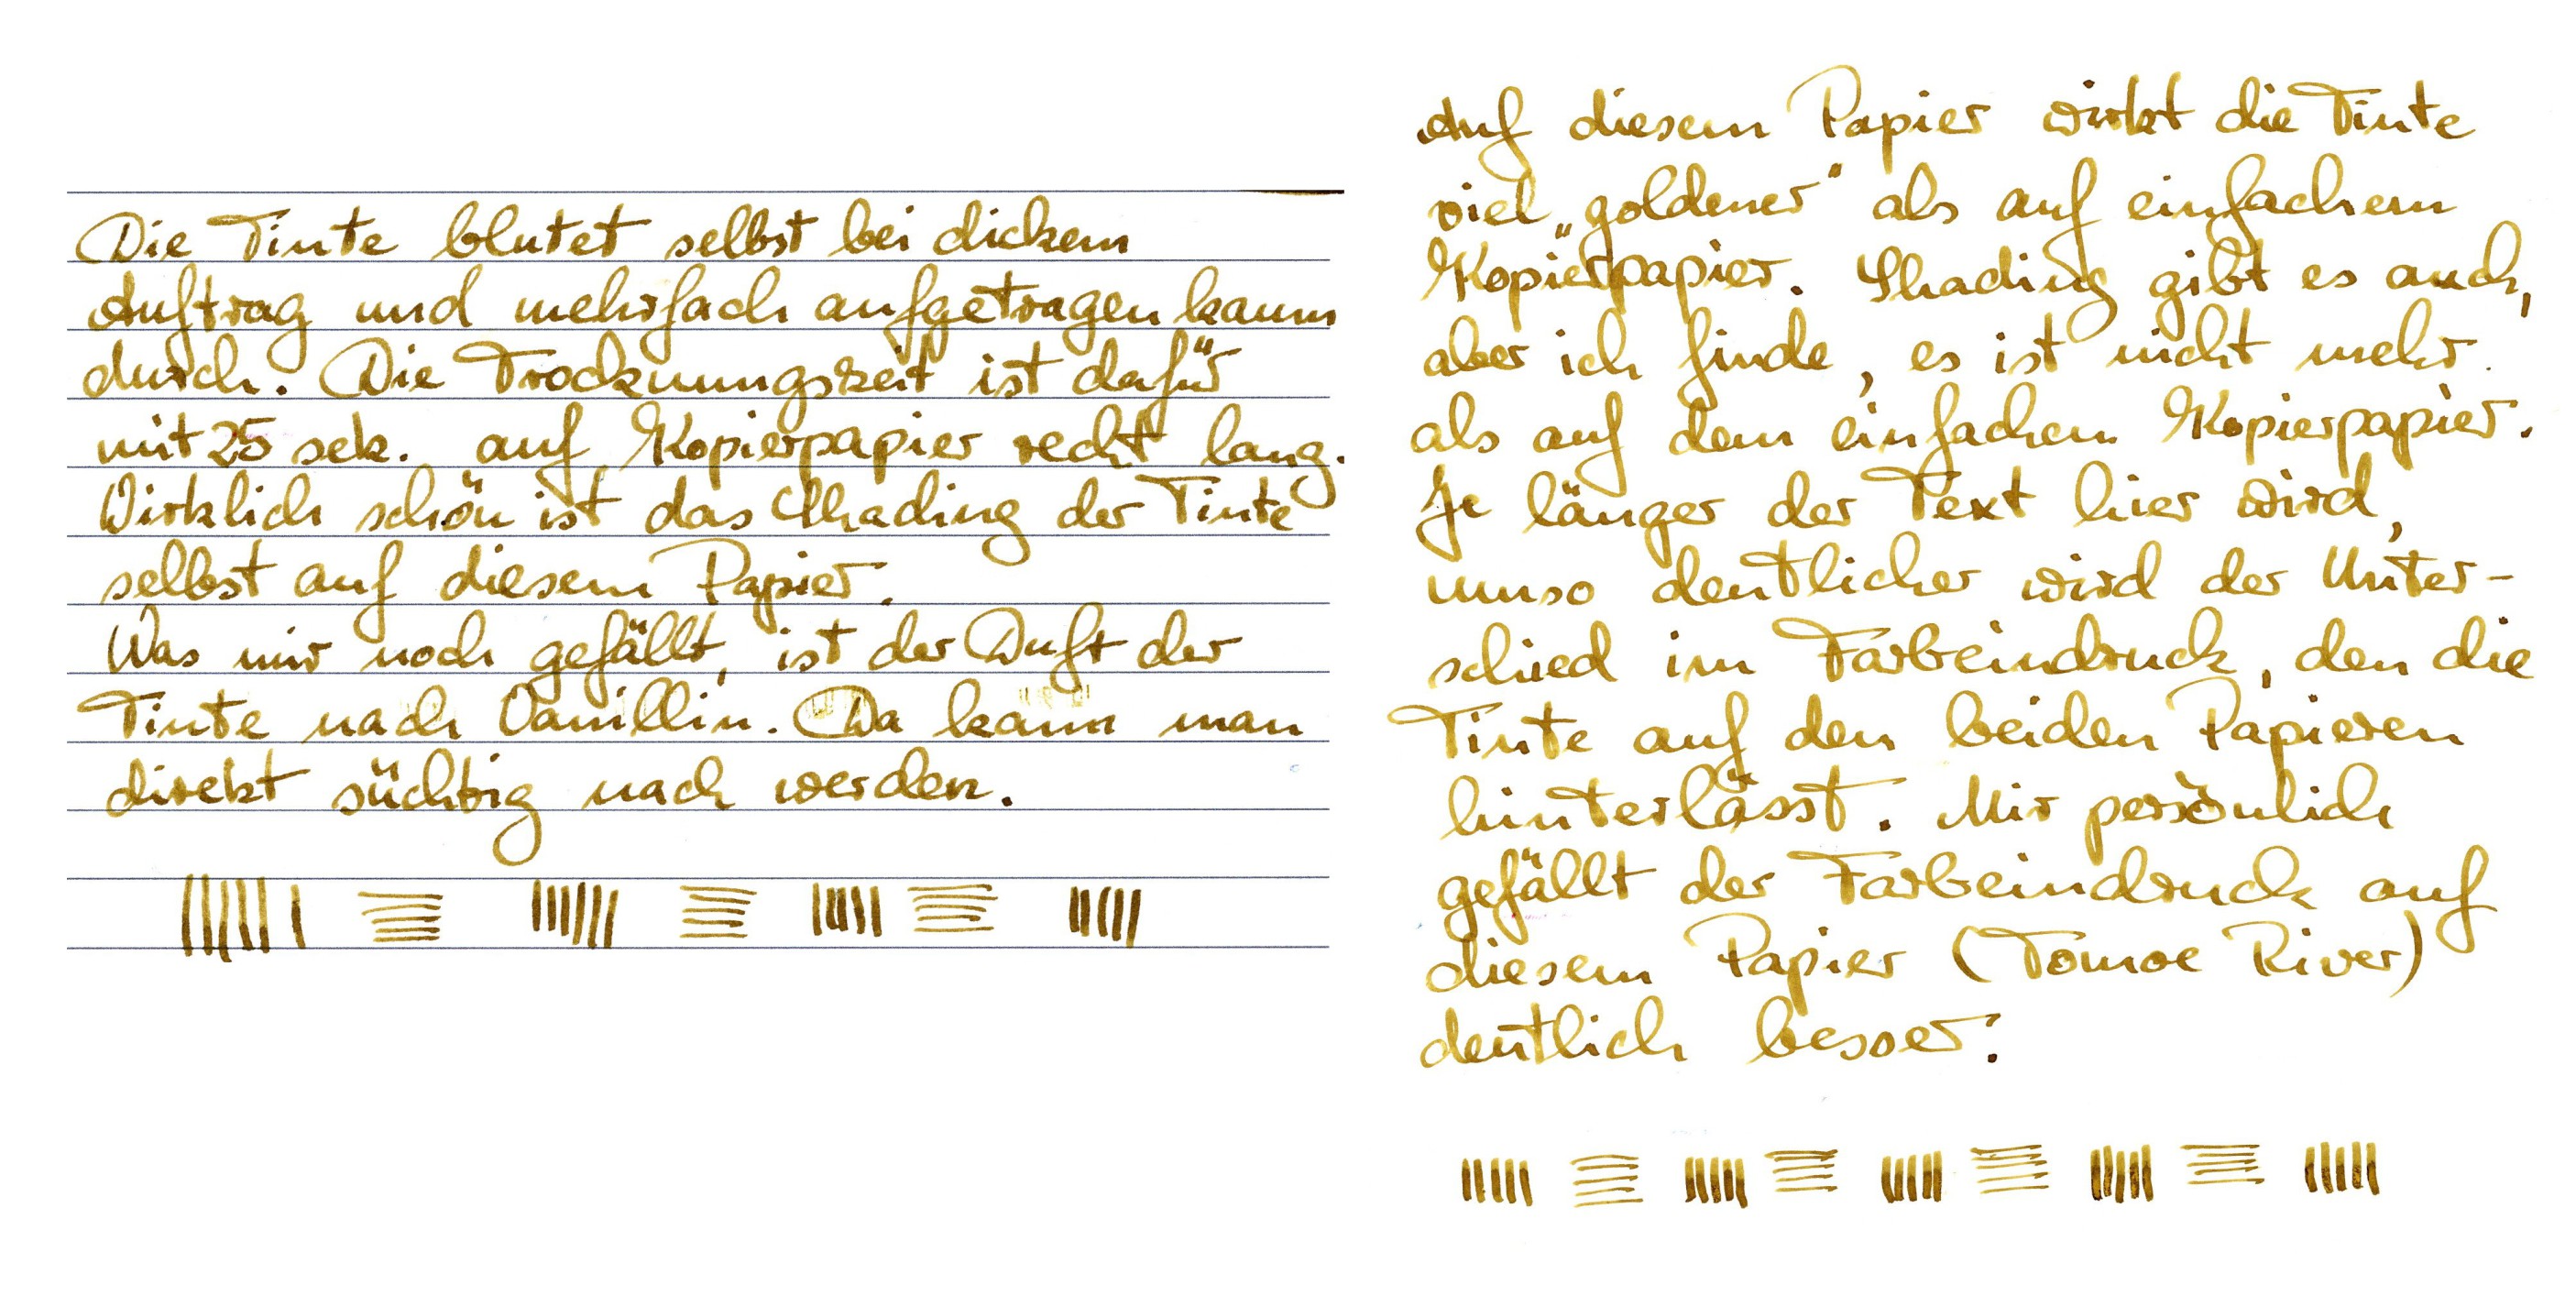 Die Tinte blutet selbst bei dickem
Auftrag und mehrfach aufgetragen kaum
durch. Die Trocknungszeit ist dafür
mit 25 sek. auf Kopierpapier recht lang.
Wirklich schön ist das Shading der Tinte
selbst auf diesem Papier.
Was mir noch gefällt, ist der Duft der
Tinte nach Vanillin. Da kann man
direkt süchtig nach werden.
Auf diesem Papier wirkt die Tinte
viel „goldener" als auf einfachem
Kopierpapier. Shading gibt es auch,
aber ich finde, es ist nicht mehr
als auf dem einfachen Kopierpapier.
Je länger der Text hier wird,
umso deutlicher wird der Unter-
schied im Farbeindruck, den die
Tinte auf den beiden Papieren
hinterlässt. Mir persönlich
gefällt der Farbeindruck auf
diesem Papier (Tomoe River)
deutlich besser.